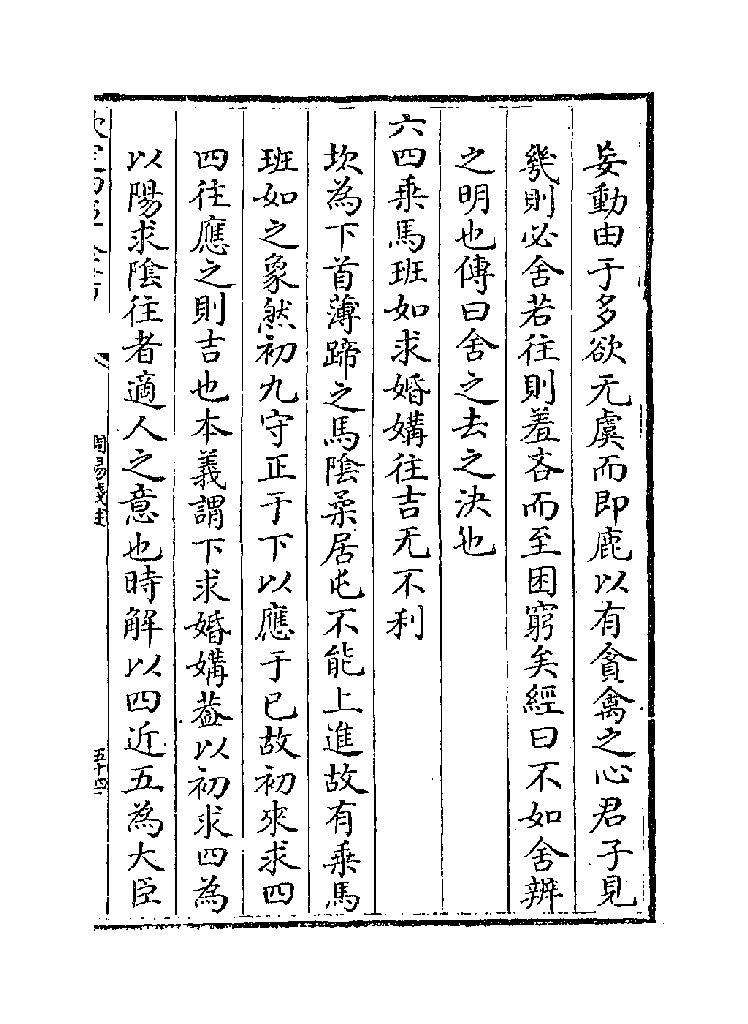 妄動由于多欲无虞而即鹿以有貪禽之心君子見
幾則必舍若往則羞吝而至困窮矣經曰不如舍辨
之明也傳曰舍之去之決也
六四乘馬班如求婚媾往吉无不利
坎為下首薄蹄之馬陰柔居屯不能上進故有乘馬
班如之象然初九守正于下以應于已故初來求四
四往應之則吉也本義謂下求婚媾葢以初求四為
以陽求陰往者適人之意也時解以四近五為大臣
周易淺述
五十四